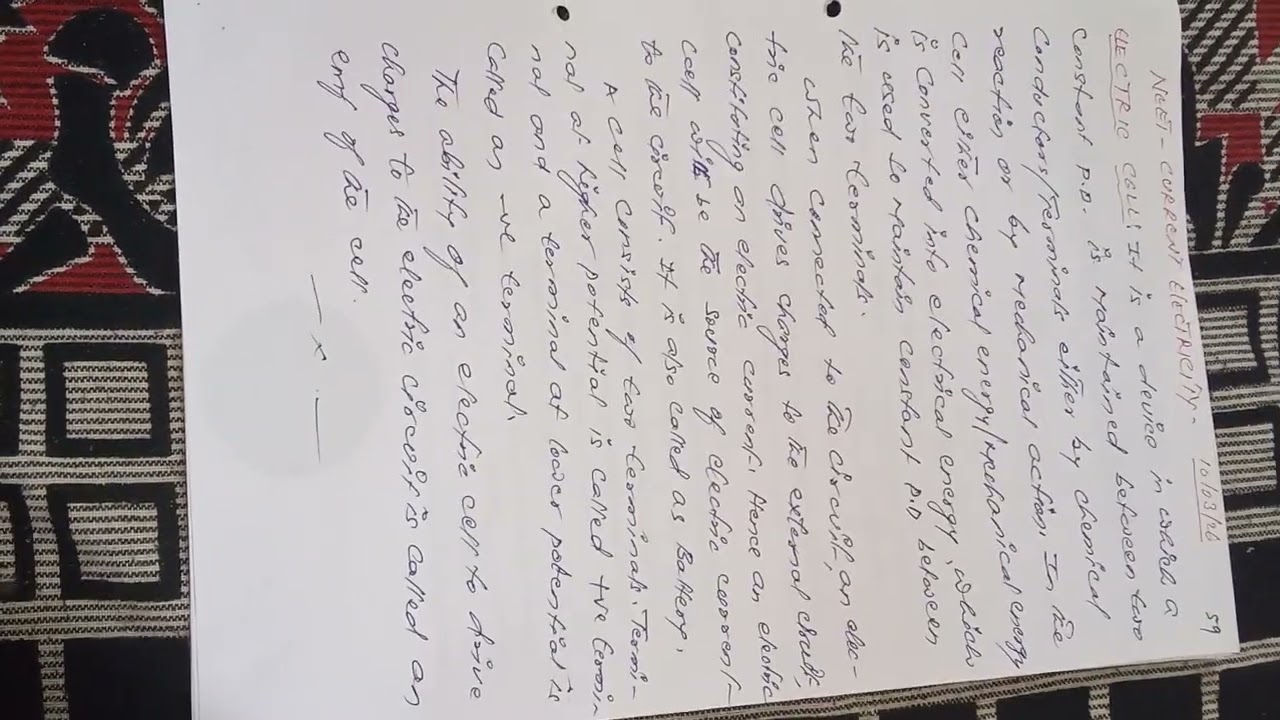 59
NEET - CURRENT ELECTRICITY - 10/03/26
ELECTRIC CELL: It is a device in which a
constant P.D. is maintained between two
conductors/terminals either by chemical
reaction or by mechanical action. In the
cell either chemical energy/mechanical energy
is converted into electrical energy, which
is used to maintain constant P.D between
the two terminals.
When connected to the circuit, an elec-
tric cell drives charges to the external circuit,
constituting an electric current. Hence an electric
cell will be the source of electric current
to the circuit. It is also called as Battery.
A cell consists of two terminals. Termi-
nal at higher potential is called +ve termi-
nal and a terminal at lower potential is
called as -ve terminal.
The ability of an electric cell to drive
charges to the electric circuit is called an
emf of the cell.
— x —